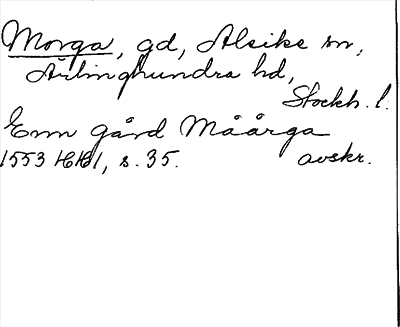 Morga, gd, Alsike sn,
Ärlinghundra hd,
Stockh. l.
Enn gård Måårga
1553 HH1, s. 35. avskr.